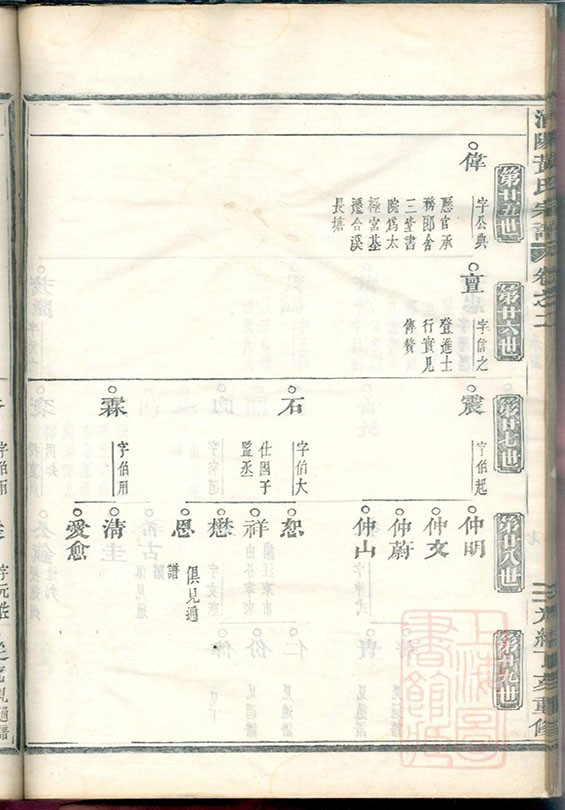 黃氏宗譜
卷之二
光緒丁亥重修
第廿五世
第廿六世
第廿七世
第廿八世
第廿九世
偉
字公典
歷官承
務郎舍
三堂書
院為太
極宮基
遷合溪
長塘
亶
字信之
登進士
行實見
傳贊
震
字伯起
石
字伯大
仕國子
監丞
霖
字伯用
仲明
仲文
仲蔚
仲山
恕
祥
懋
恩
俱見通
譜
清
愛
上海圖
書館藏